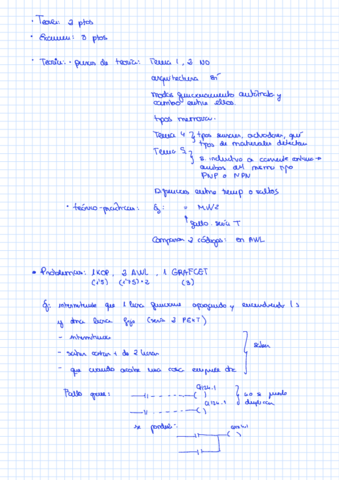 · Teoría: 2 ptos
· Examen: 8 ptos
· Teoría: · puros de teoría: Tema 1, 2 NO
arquitectura SÍ
modos funcionamiento autómata y
cambio entre ellos.
tipos memoria.
Tema 4 } tipos sensores, actuadores, qué
Tema 5 tipos de materiales detectan
s. inductivo a corriente
ambos del mismo tipo
PNP o NPN
Diferencias entre temp o saltos
· teórico-prácticas: Ej: = MW2
fallo serie T
Comparar 2 códigos: en AWL
· Problemas: 1 KOP, 2 AWL, 1 GRAFCET
(1'5) (1'75)·2 (3)
Ej: intermitente que 1 luz funcione apagando y encendiendo 1s
y otra luz fija (serie 2 )
- intermitencia
- saber contar + de 2 horas
- que cuando acabe una cosa empiece otra
Fallo grave: Q124.1
Q124.1
no se puede
duplicar
se pondría: